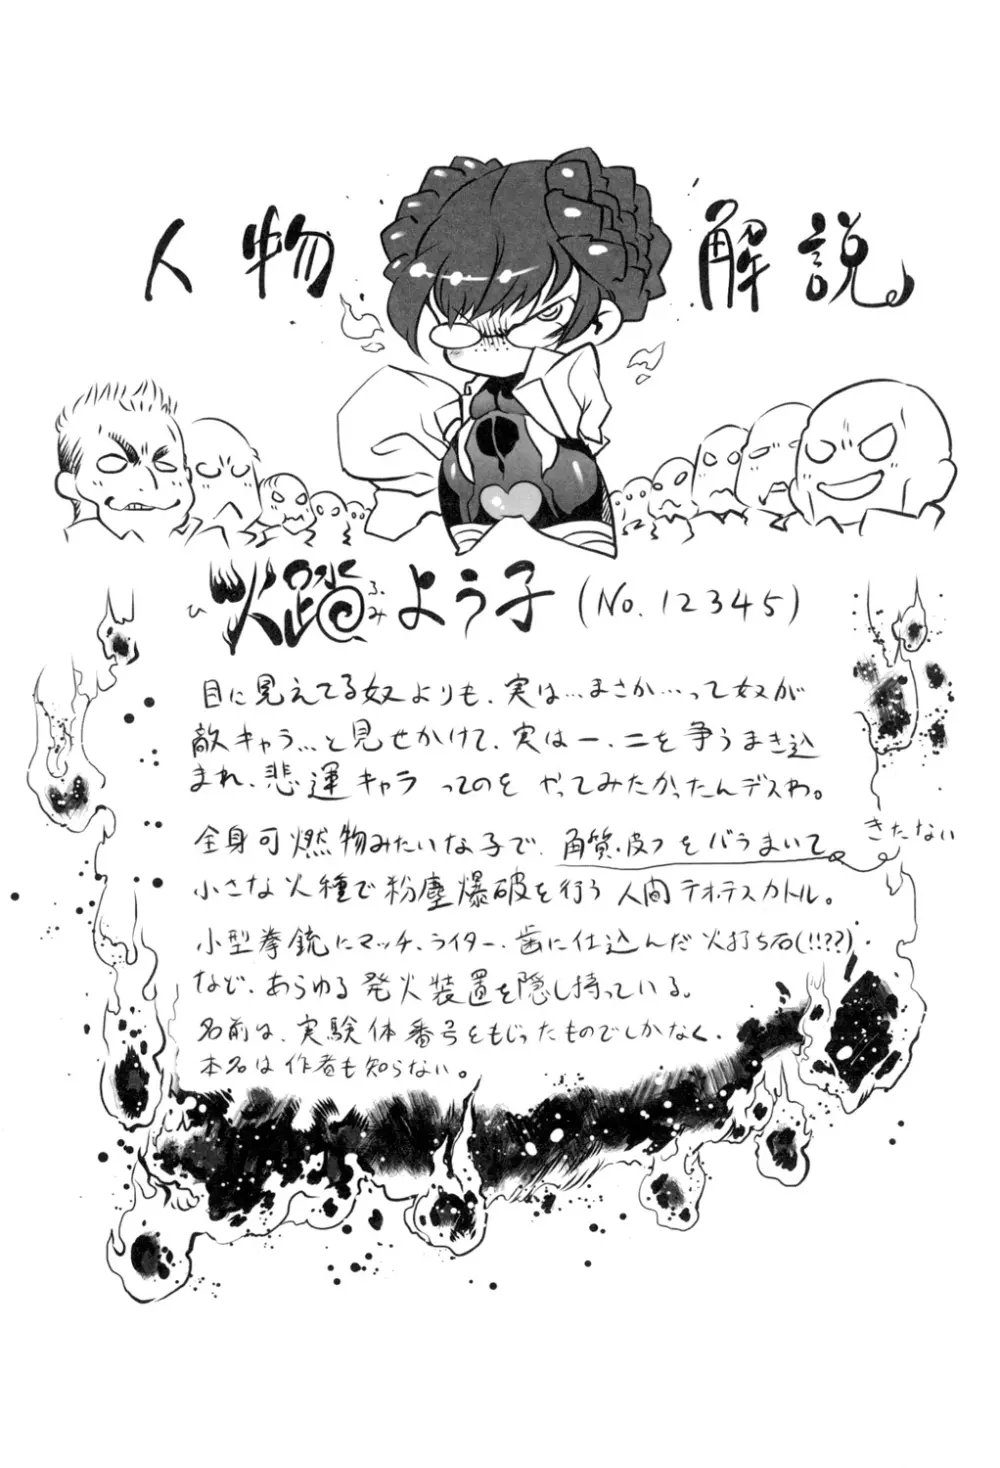 人物解説
火踏よう子 (No.12345)
ひ ふみ
目に見えてる奴よりも、実は…まさか…って奴が
敵キャラ…と見せかけて、実は一、二を争うまき込
まれ、悲運キャラ ってのを やってみたかったんデスわ。
全身可燃物みたいな子で、角質・皮フをバラまいて
きたない
小さな火種で粉塵爆破を行う 人間テオ・テスカトル。
小型拳銃にマッチ、ライター、歯に仕込んだ火打ち石(!!??)
など、あらゆる発火装置を隠し持っている。
名前は、実験体番号をもじったものでしかなく、
本名は作者も知らない。